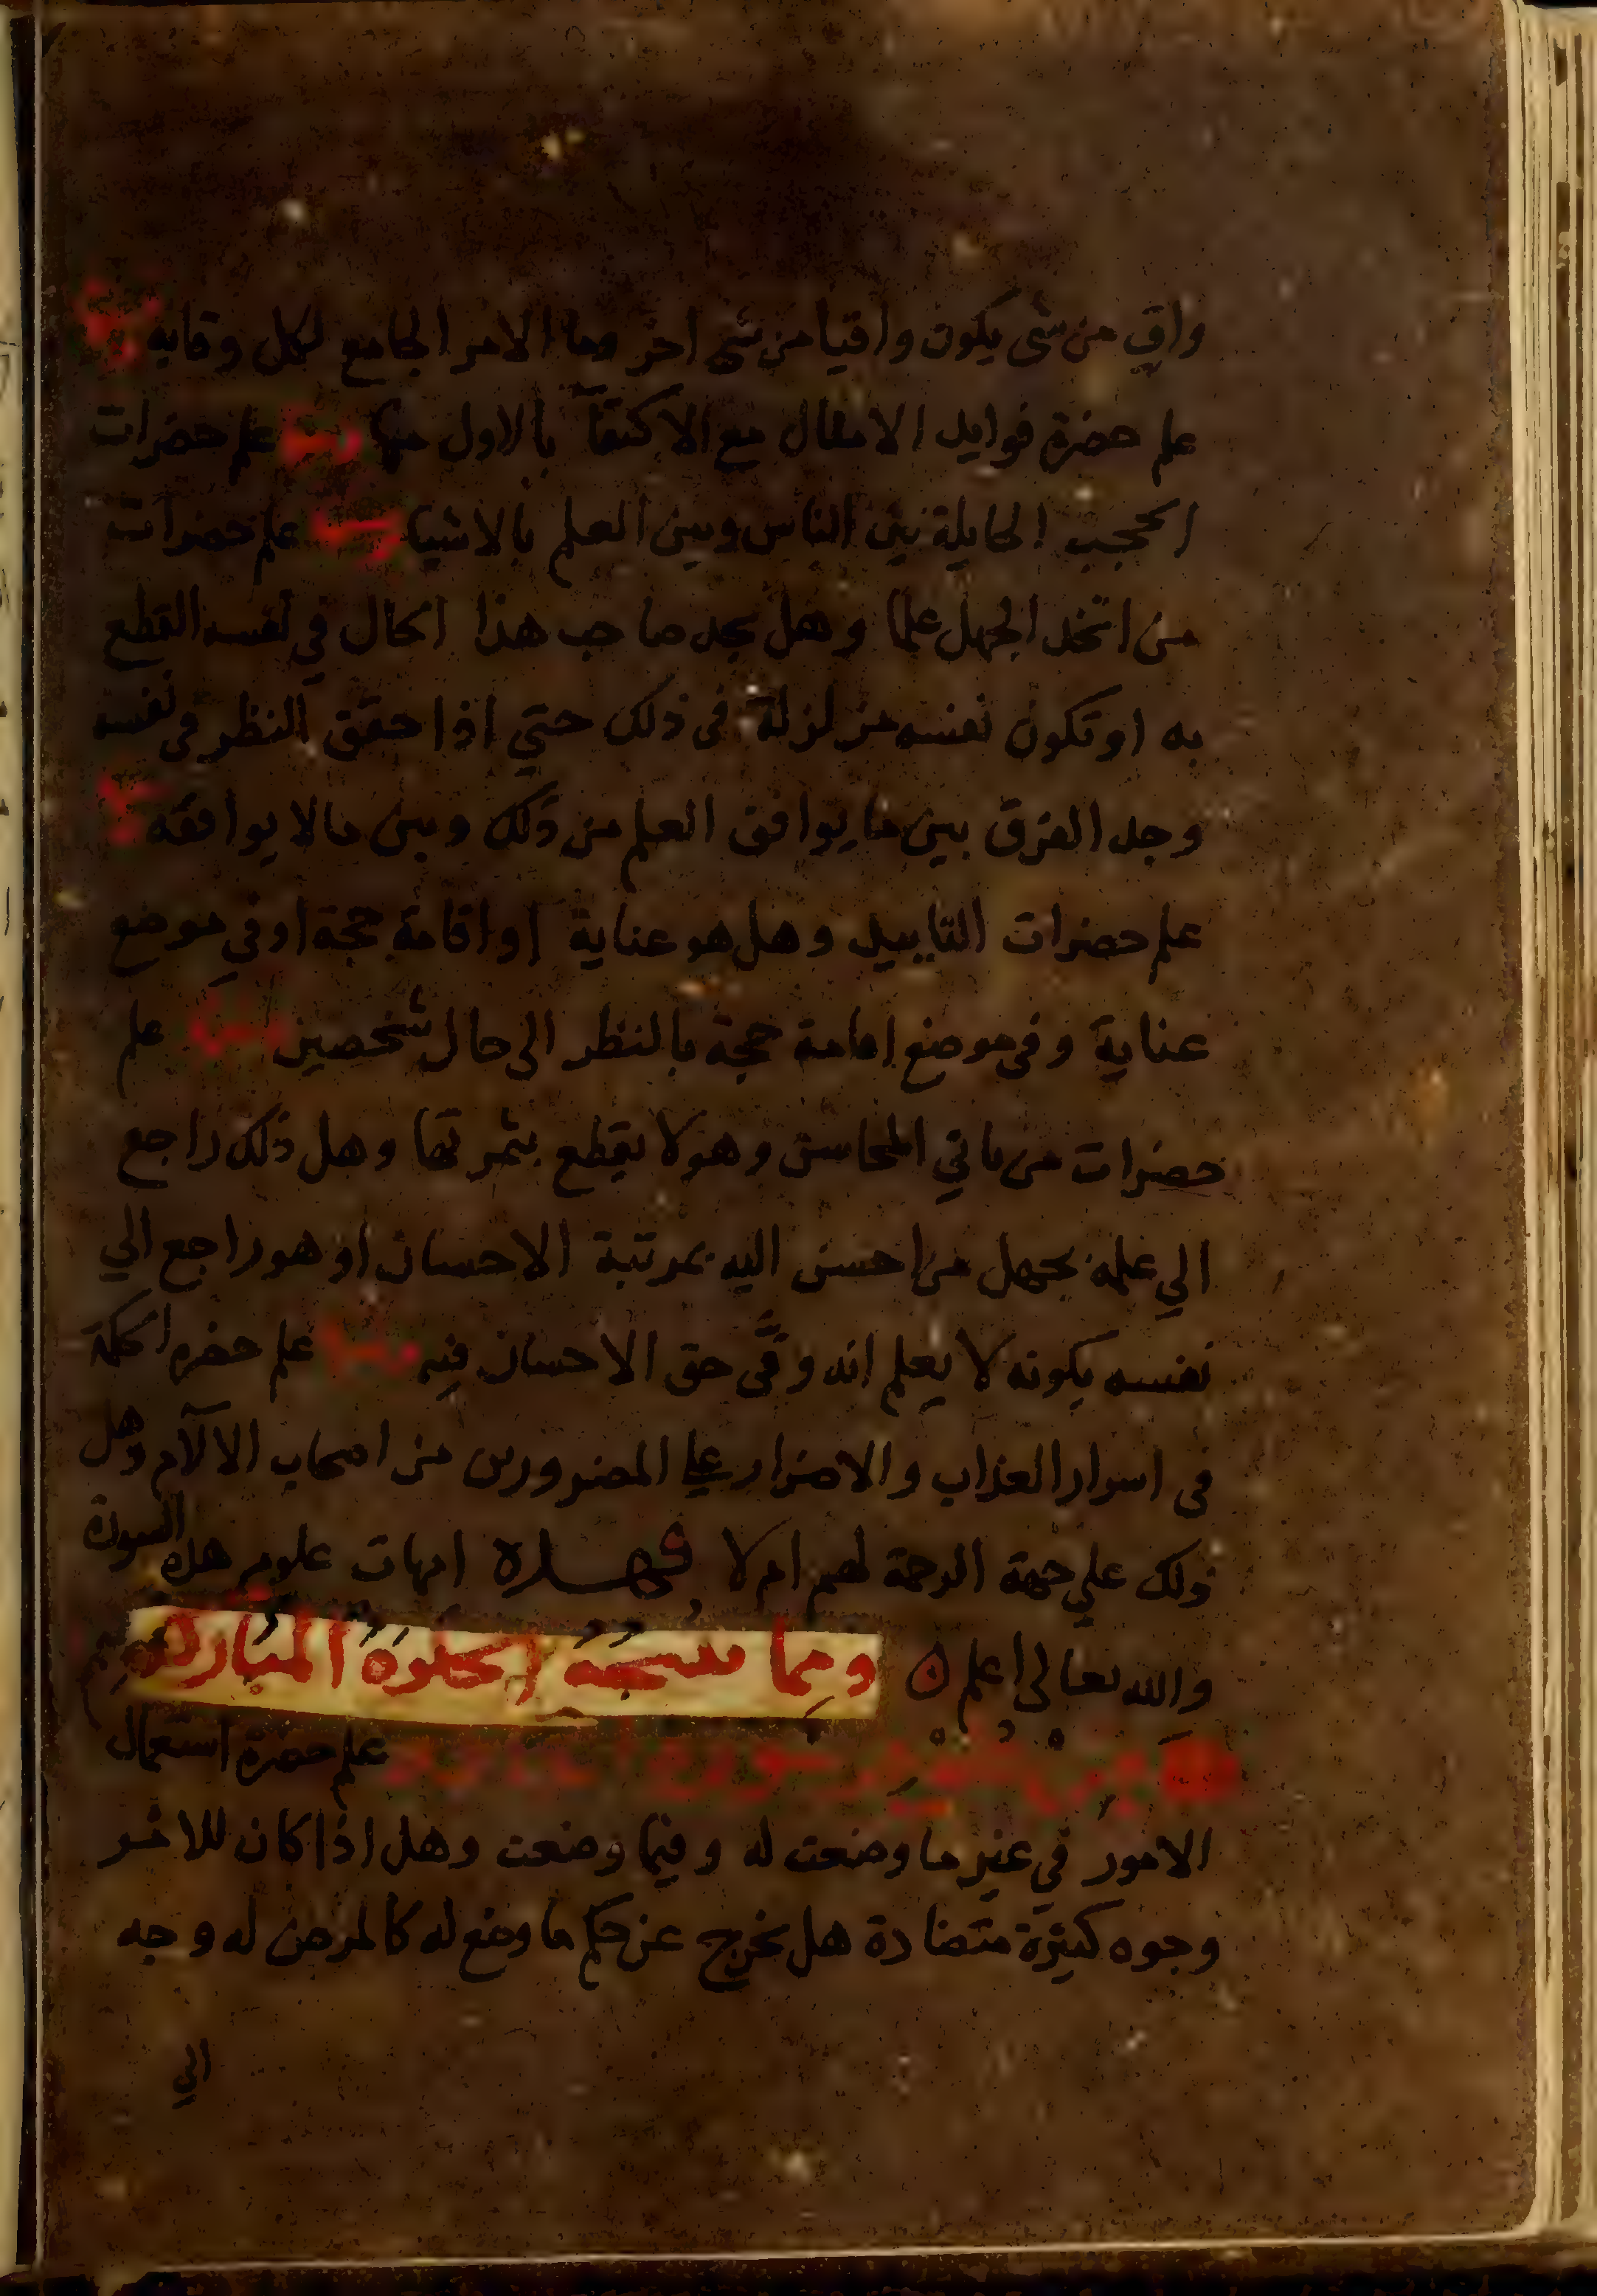 واق من شى يكون واقيا من شى اخر وما الامر الجامع لكل وقايه
علم حضرة فوايد الامثال مع الاكتفآ بالاول منها ومنها علم حضرات
الحجب الحايلة بين الناس وبين العلم بالاشيا ومنها علم حضرات
من اتخذ الجهل علما وهل يجد صاحب هذا الحال في نفسه القطع
به او تكون نفسه متزلزلة فى ذلك حتي اذا حقق النظر فى نفسه
وجد الفرق بين ما يوافق العلم من ذلك وبين مالا يوافقه
علم حضرات التاييد وهل هو عناية او اقامة حجة او في موضع
عناية وفى موضع اقامة حجة بالنظر الى حال شخصين ومنها علم
حضرات من ياتي المحاسن وهو لا يقطع بثمرتها وهل ذلك راجع
الي علمه بجهل من احسن اليه بمرتبة الاحسان او هو راجع الي
نفسه بكونه لا يعلم انه وفَّى حق الاحسان فيه ومنها علم حضره الحكمة
فى اسرار العذاب والاضرار علي المضرورين من اصحاب الالآم وهل
ذلك علي جهة الرحمة لهم ام لا فهذه امهات علوم هذه السورة
والله تعالى اعلم ومما نتجته الخلوة المباركة
علم حضرة استعمال
الامور في غير ما وضعت له وفيما وضعت وهل اذا كان للامر
وجوه كثيرة متضادة هل يخرج عن حكم ما وضع له كالمرض له وجه
الي